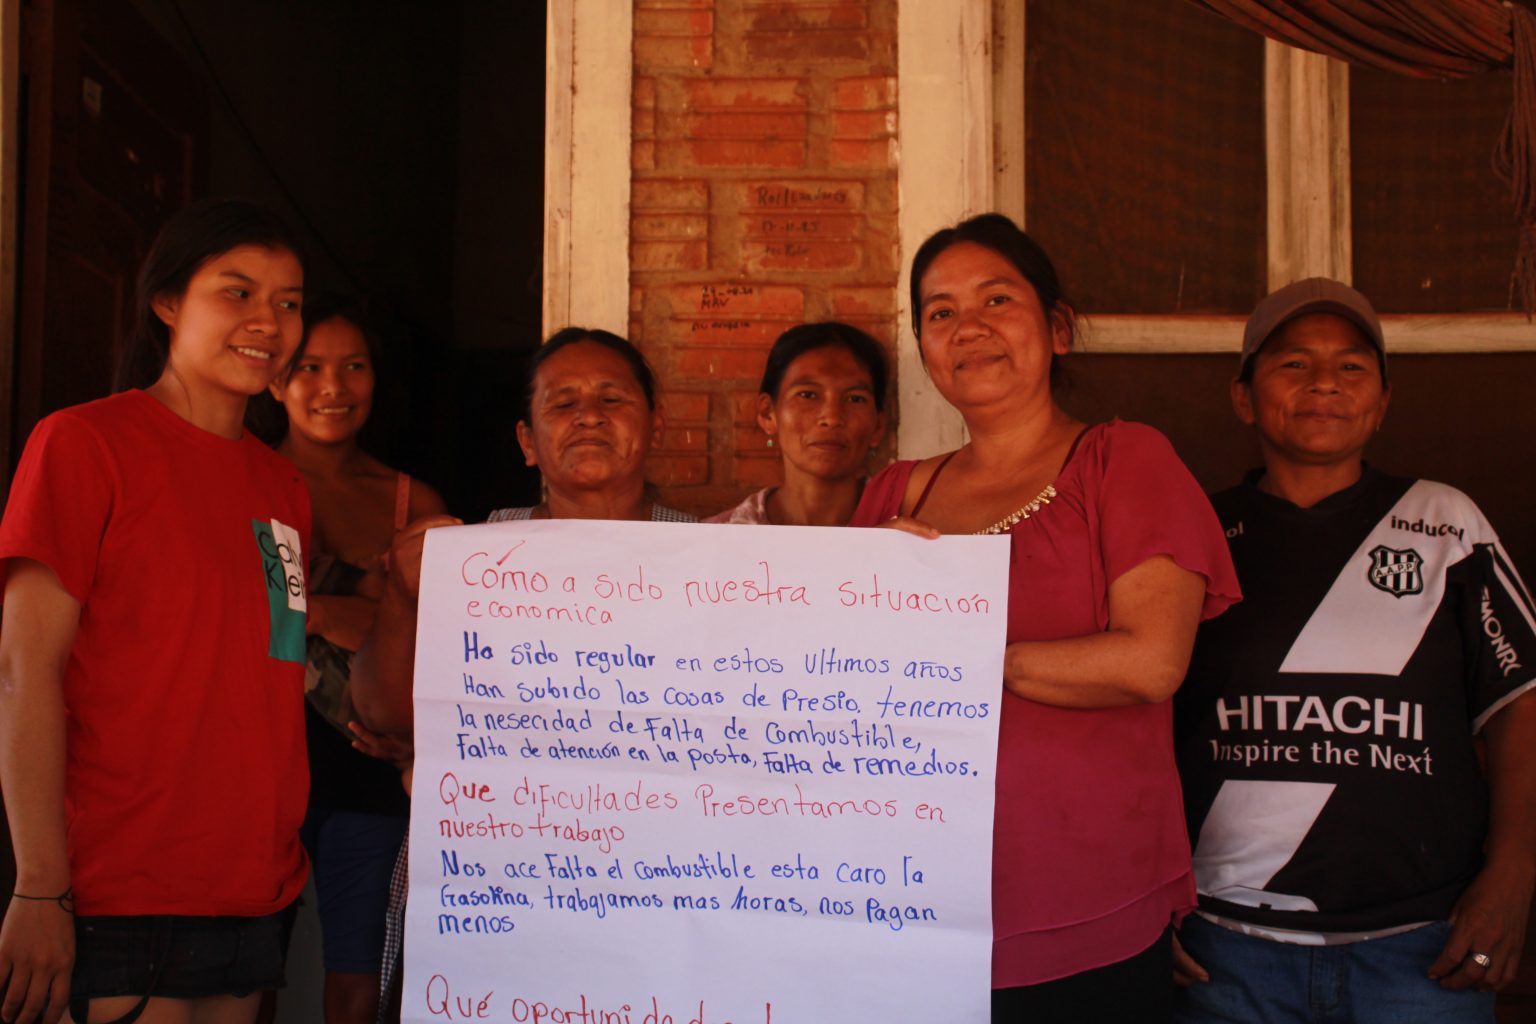 Cómo a sido nuestra situación
economica
Ha sido regular en estos ultimos años
Han subido las cosas de Presio. tenemos
la nesecidad de Falta de Combustible,
Falta de atención en la posta, Falta de remedios.
Que dificultades Presentamos en
nuestro trabajo
Nos ace Falta el combustible esta caro la
Gasolina, trabajamos mas horas, nos Pagan
menos
Qué
Calvin
Klein
inducol
A.A.P.P.
HITACHI
Inspire the Next
MAV